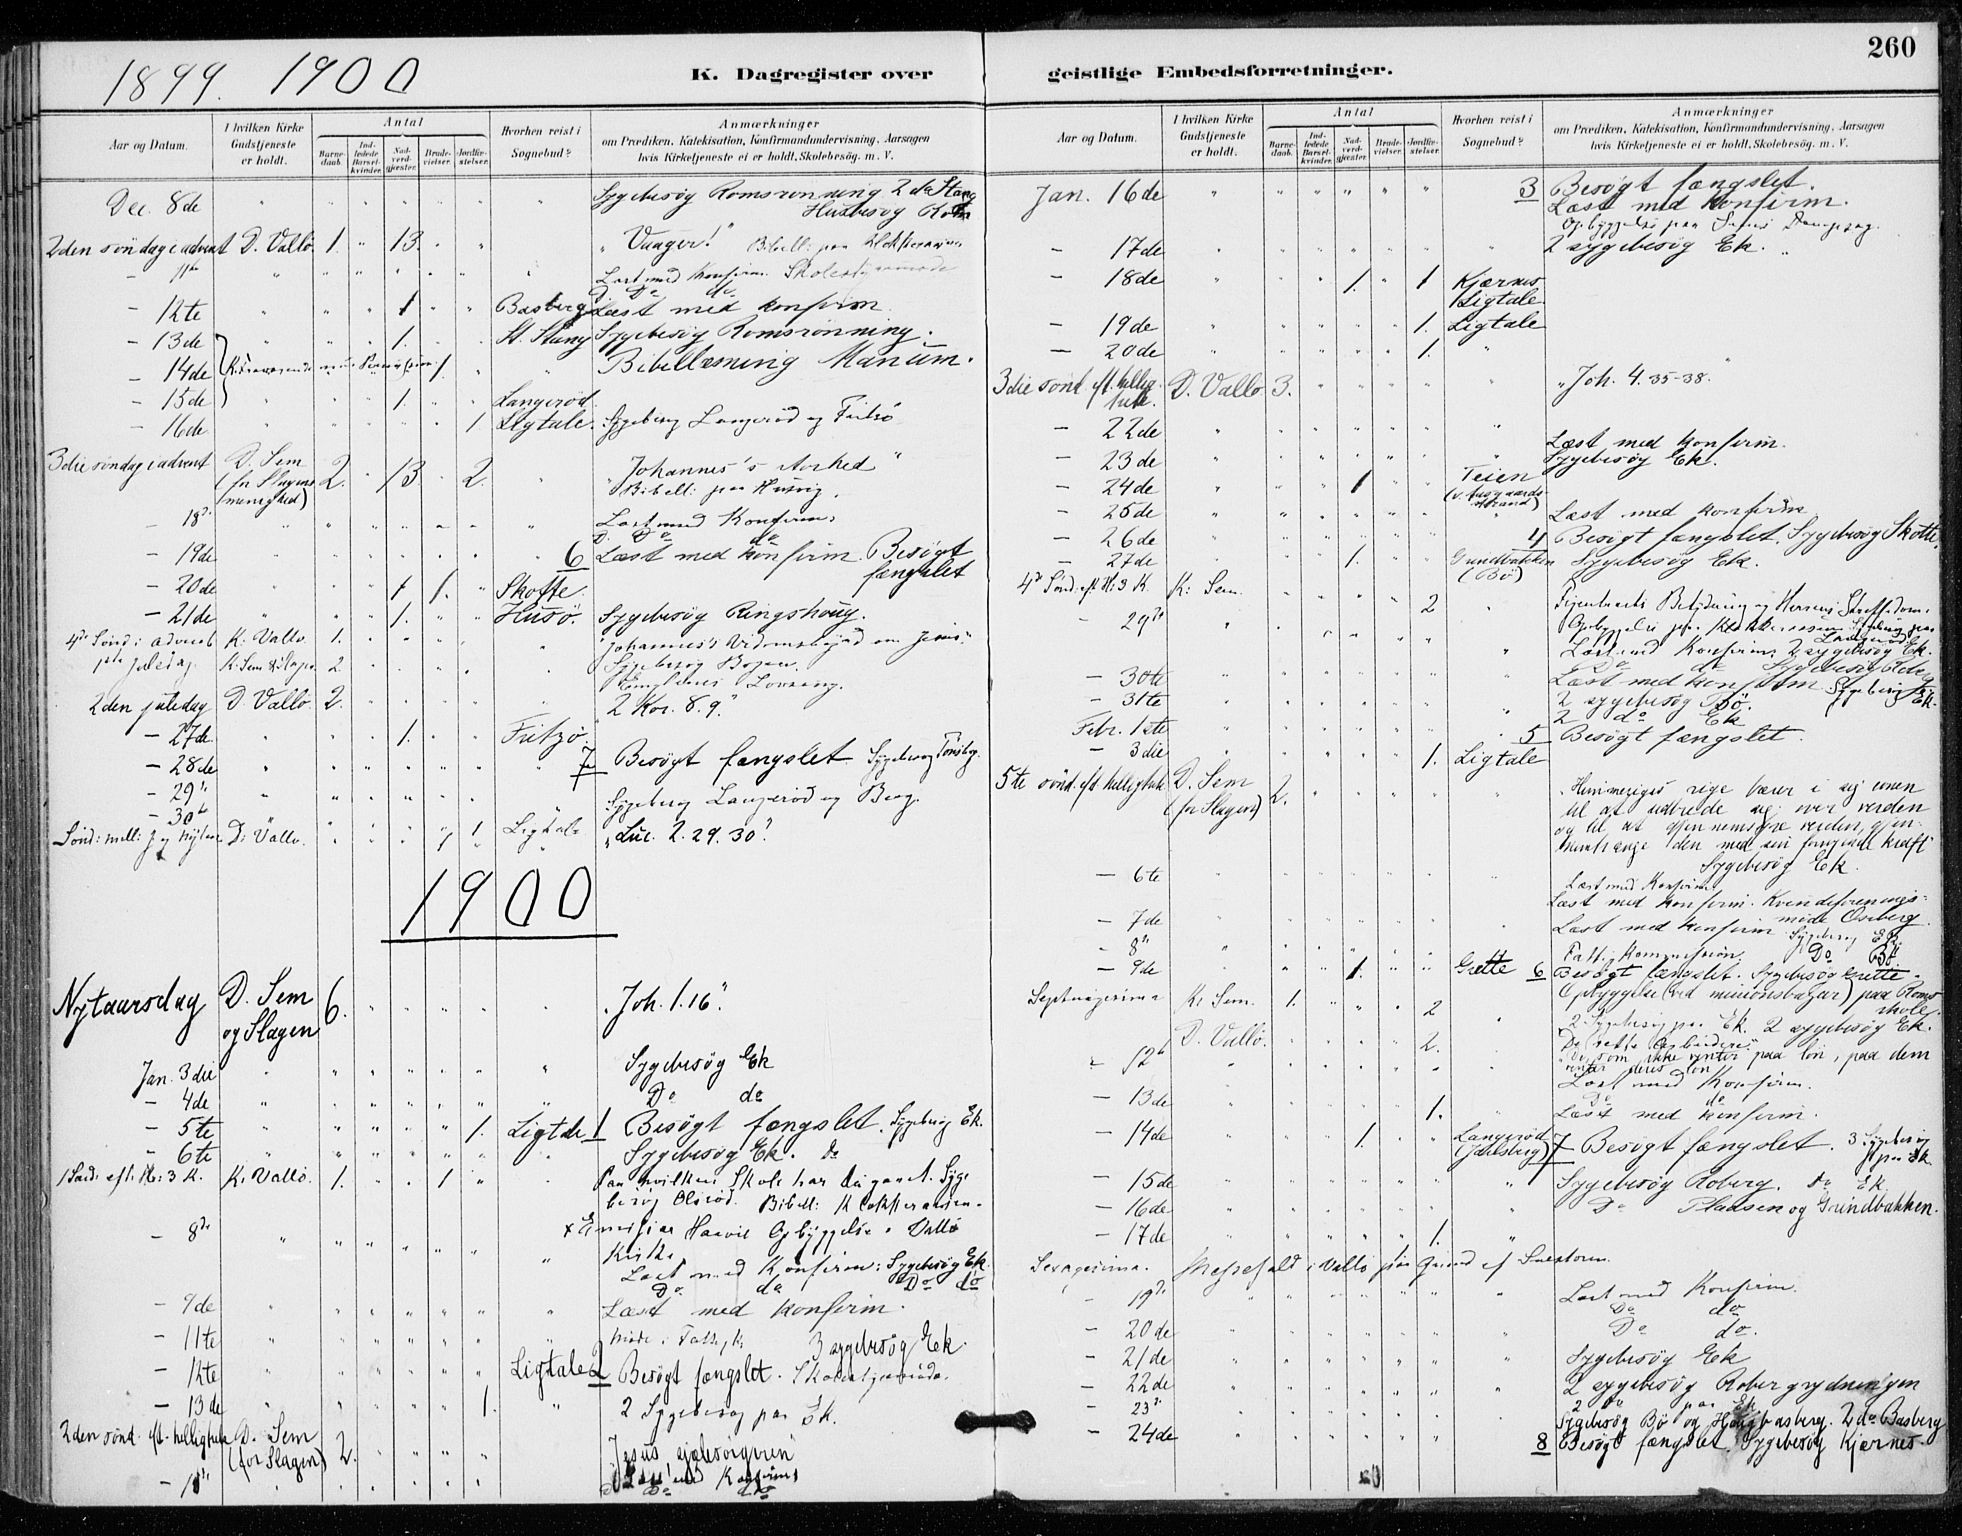 260
1899. 1900
K. Dagregister over geistlige Embedsforretninger.
Aar og Datum.
I hvilken Kirke Gudstjeneste er holdt.
Antal
Barnedaab.
Indledede Barselkvinder.
Nadverdgjester.
Brudevielser.
Jordfæstelser.
Hvorhen reist i Sognebud?
Anmærkninger
om Prædiken, Katekisation, Konfirmandundervisning, Aarsagen
hvis Kirketjeneste ei er holdt, Skolebesøg. m. V.
Dec. 8de " " " " " " Sygebesøg Romsrønning 2 do Stang
Husbesøg
2den søndag i advent D. Vallø. 1. " 13. " " " Vaager! "
11te Læst med Konfirm. Skolestyremøde
Do do
- 12te " " " 1 " " Basberg Læst med konfirm.
- 13de " " " 1. St. Stang Sygebesøg Romsrønning.
- 14de 1. " " Bibellæsning Manum.
- 15de " " " 1. Langerød
- 16de " 1 Ligtale. Sygebesøg Langerød og Fritsø
3die søndag i advent D. Sem (for Slagens menighed) 2. " 13. " 2. " Johannes's storhed "
Bibell: paa Husvig.
- 18de Læst med Konfirm:
Do do
- 19de 6 Læst med konfirm. Besøgt fængslet
- 20de 1 1. " Skotte.
- 21de 1. Husø. Sygebesøg Ringshoug.
4de Sønd. i advent K. Vallø. 1. "Johannes's Vidnesbyrd om Jesus"
Sygebesøg Bogen.
1ste juledag K. Sem & Slagen 2 Englenes Lovsang.
2den juledag D. Vallø. 2. 2 Kor. 8. 9."
- 27de 1. Fritzø.
- 28de 7 Besøgt fængslet. Sygebesøg Tønsbg.
- 29de
- 30te Sygebesøg Langerød og Berg.
Sønd. mell. J og Nytaar D. Vallø. 1 1 Ligtale "Luc. 2. 29. 30"
1900
Nytaarsdag D. Sem og Slagen 6. "Joh. 1. 16."
Jan. 3die Sygebesøg Ek
- 4de Do do
- 5te 1. Ligtale 1 Besøgt fængslet. Sygebesøg Ek.
- 6te Sygebesøg Ek. do
1 Sønd. eft. H. 3 K. K. Vallø. 1. 1 Paa hvilken Skole har du gaaet. Syge
besøg Olsrød. Bibell:
Opbyggelse i Vallø
Kirke
- 8de Læst med Konfirm: Sygebesøg Ek
Do do Do do
- 9de Læst med konfirm.
- 11te Møde i Fattigk. 3 sygebesøg Ek.
- 12te Ligtale 2 Besøgt fængslet. Skolestyremøde.
- 13de 1. 2 Sygebesøg paa Ek.
2den sønd. eft. helligtrek. D. Sem (for Slagen) 2. "Jesus sjælesørgeren"
Læst med Konfirm
Do do
Aar og Datum.
I hvilken Kirke Gudstjeneste er holdt.
Antal
Barnedaab.
Indledede Barselkvinder.
Nadverdgjester.
Brudevielser.
Jordfæstelser.
Hvorhen reist i Sognebud?
Anmærkninger
om Prædiken, Katekisation, Konfirmandundervisning, Aarsagen
hvis Kirketjeneste ei er holdt, Skolebesøg. m. V.
Jan. 16de 3 Besøgt fængslet.
Læst med Konfirm.
Opbyggelse paa
- 17de 2 sygebesøg Ek.
- 18de 1. 1 Kjærnes Ligtale
- 19de 1. Ligtale
- 20de 1.
3die sønd. eft. hellig trek. D. Vallø. 3. "Joh. 4. 35-38."
- 22de Læst med Konfirm.
- 23de Sygebesøg Ek.
- 24de 1 Teien (v. Aasgaardsstrand)
- 25de Læst med konfirm
- 26de 4 Besøgt fængslet. Sygebesøg Skotte.
- 27de 1. Grundbakken (Bø) Sygebesøg Ek.
4de Sønd. eft. H. 3 K. K. Sem. 2 Figentræets Betydning og Herrens Straffedom.
Opbyggelse paa
- 29de Læst med Konfirm: 2 sygebesøg Ek.
Do do Sygebesøg
- 30te Læst med konfirm. Sygebesøg Ek.
- 31te 2 sygebesøg Bø.
2 do Ek
Febr. 1ste 5 Besøgt fængslet.
- 3die 1. Ligtale
5te sønd. eft. helligtrek. D. Sem (for Slagen) 2. "Himmeriges rige bærer i sig evnen
til at udbrede sig over verden
og til at gjennemsyre verden, gjen-
nemtrænge den med sin fornyende kraft"
Sygebesøg Ek.
- 6te Læst med Konfirm
Læst med konfirm. Kvindeforenings-
møde Oseberg
- 7de Læst med konfirm. Sygebesøg Ek.
- 8de Fattigkommission. Do Bø
- 9de 1. Grette 6 Besøgt fængslet. Sygebesøg Grette.
Septuagesima K. Sem. 1. 2 Opbyggelse (ved missionsbazar) paa Roms
skole.
2 Sygebesøg paa Ek. 2 sygebesøg Ek.
D. Vallø. 2. De rette Arbeidere:
"De, som ikke venter paa løn, paa dem
venter deres løn"
- 12te Læst med Konfirm.
Do do
- 13de 1. Læst med konfirm.
- 14de 1. Langerød (Jarlsberg) 7 Besøgt fængslet. 3 Sygebesøg
paa Ek.
- 15de Sygebesøg Roberg. do Ek.
- 16de Do Pladsen og Grindbakken.
- 17de 1.
Sexagesima. Messefald i Vallø paa Grund af Snestorm.
- 19de Læst med Konfirm.
Do do
- 20de Do do.
- 21de Sygebesøg Ek
- 22de 2 sygebesøg Robergrydningen
- 23de 2 do paa Ek
Sygebesøg Bø og Hougbasberg. 2 do Basberg
- 24de 8 Besøgt fængslet. Sygebesøg Kjærnes